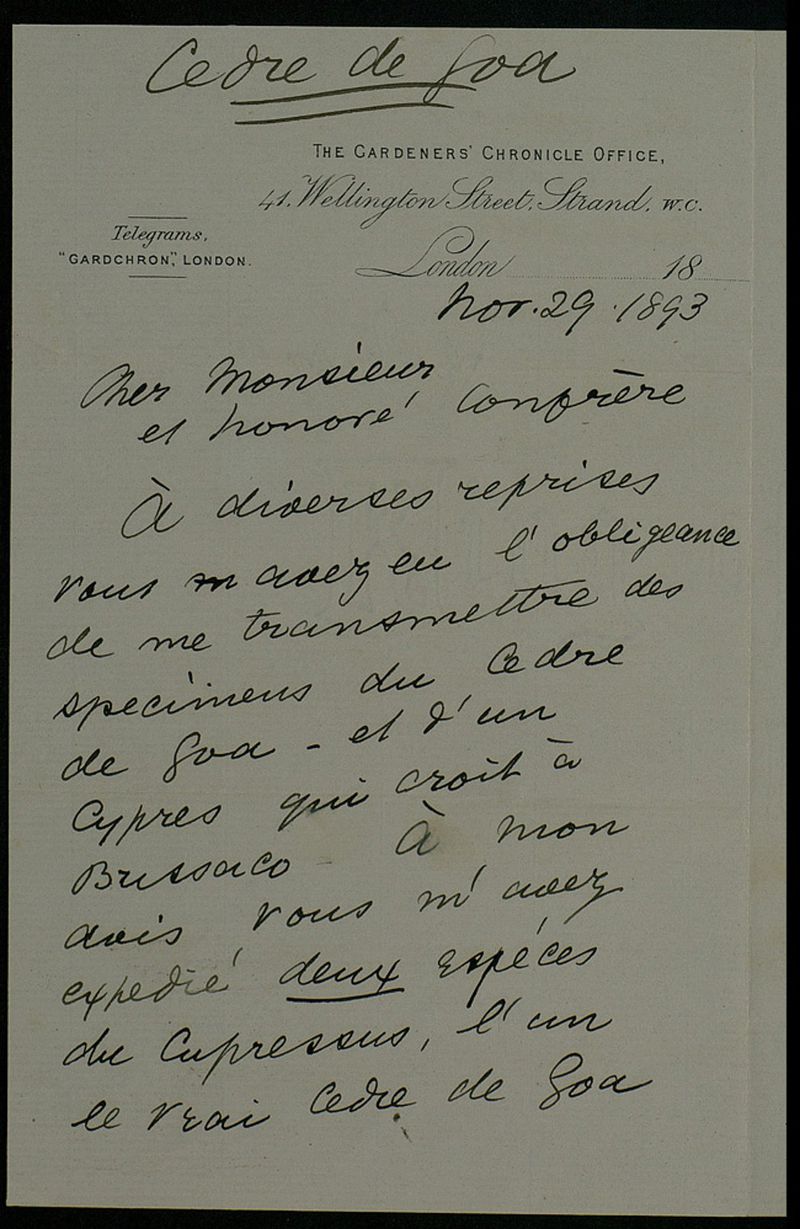 Cedre de Goa
THE GARDENERS' CHRONICLE OFFICE,
41, Wellington Street, Strand, W.C.
Telegrams,
"GARDCHRON", LONDON.
London 18
Nov. 29. 1893
Cher Monsieur
et honoré confrère
À diverses reprises
vous m avez eu l'obligeance
de me transmettre des
specimens du Cedre
de Goa - et d'un
Cypres qui croit à
Bussaco - À mon
avis vous m'avez
expedié deux espéces
du Cupressus, l'un
le vrai Cedre de Goa